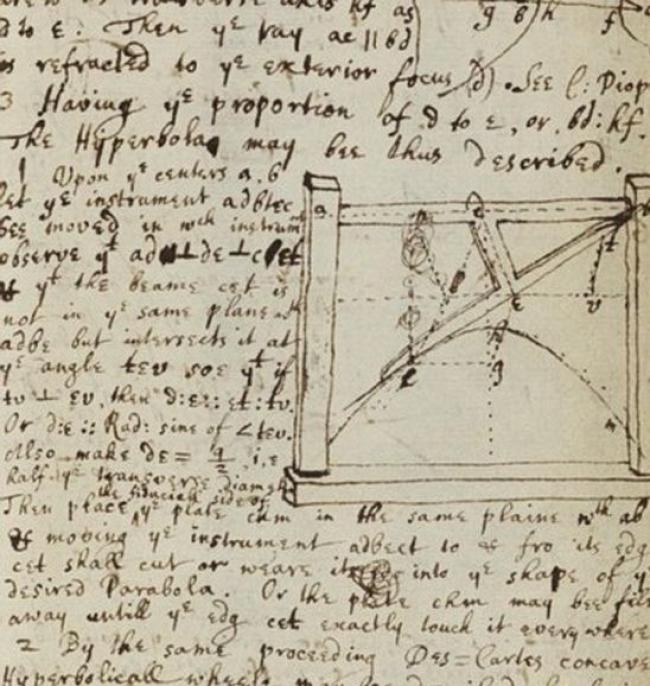 hf as
d to ε. Then yᵉ ray ae || bd
is refracted to yᵉ exterior focus (d). See C: Diop
3 Having yᵉ proportion of d to ε, or, bd: hf.
The Hyperbola may bee thus described.
1 Upon yᵉ centers a. b
let yᵉ instrument adbtec
bee moved in wᶜʰ instrum
observe yᵗ ad ⊥ de ⊥ cet
yᵗ the beame cet is
not in yᵉ same plane
adbe but intersects it at
yᵉ angle tev soe yᵗ if
tv ⊥ ev, then d:ε:: et: tv.
Or d:ε :: Rad: sine of ∠tev.
Also make de = q/2, i.e
half yᵉ transverse diam
the fiduciall side of
Then place yᵉ plate chm in the same plaine wᵗʰ ab
& moving yᵉ instrument adbect to & fro its edg
cet shall cut or weare it into yᵉ shape of yᵉ
desired Parabola. Or the plate chm may bee file
away untill yᵉ edg cet exactly touch it every where
2 By the same proceeding Des=Cartes concave
Hyperbolicall wheele may bee described
g b h f
a e t
e v
h
c g
m